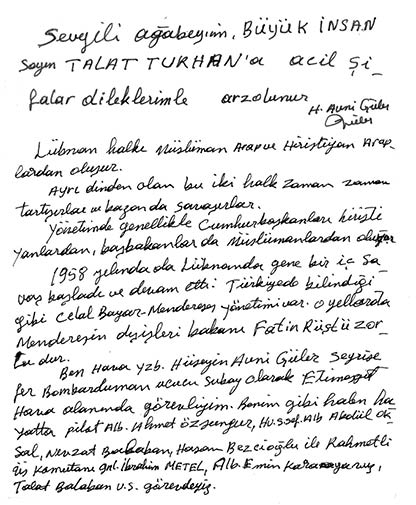 Sevgili ağabeyim, BÜYÜK İNSAN
Sayın TALAT TURHAN'a acil şi-
falar dileklerimle arzolunur
H. Avni Güler
Güler
Lübnan halkı Müslüman Arap ve Hıristiyan Arap-
lardan oluşur.
Ayrı dinden olan bu iki halk zaman zaman
tartışırlar ve bazan da savaşırlar.
Yönetimde genellikle Cumhurbaşkanları hıristi
yanlardan, başbakanlar da Müslümanlardan oluşur
1958 yılında da Lübnanda gene bir iç sa-
vaş başladı ve devam etti. Türkiyede bilindiği
gibi Celal Bayar-Menderes yönetimi var. o yıllarda
Menderesin dışişleri bakanı Fatin Rüştü Zor-
lu dur.
Ben Hava Yzb. Hüseyin Avni Güler Seyrise
fer Bombardıman uçucu Subay olarak Etimesgut
Hava alanında görevliyim. Benim gibi halen ha
yatta pilot Alb. Ahmet özgüngur, Alb Abdül
Sal, Nevzat Hasan Bezcioğlu ile Rahmetli
üs Komutanı gnl. İbrahim METEL, Alb. Emin
Talat Balaban v.s. görevdeyiz.